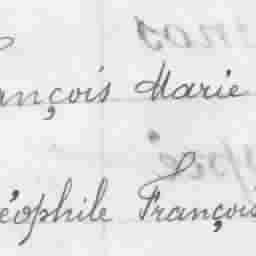 ançois Marie
éophile François